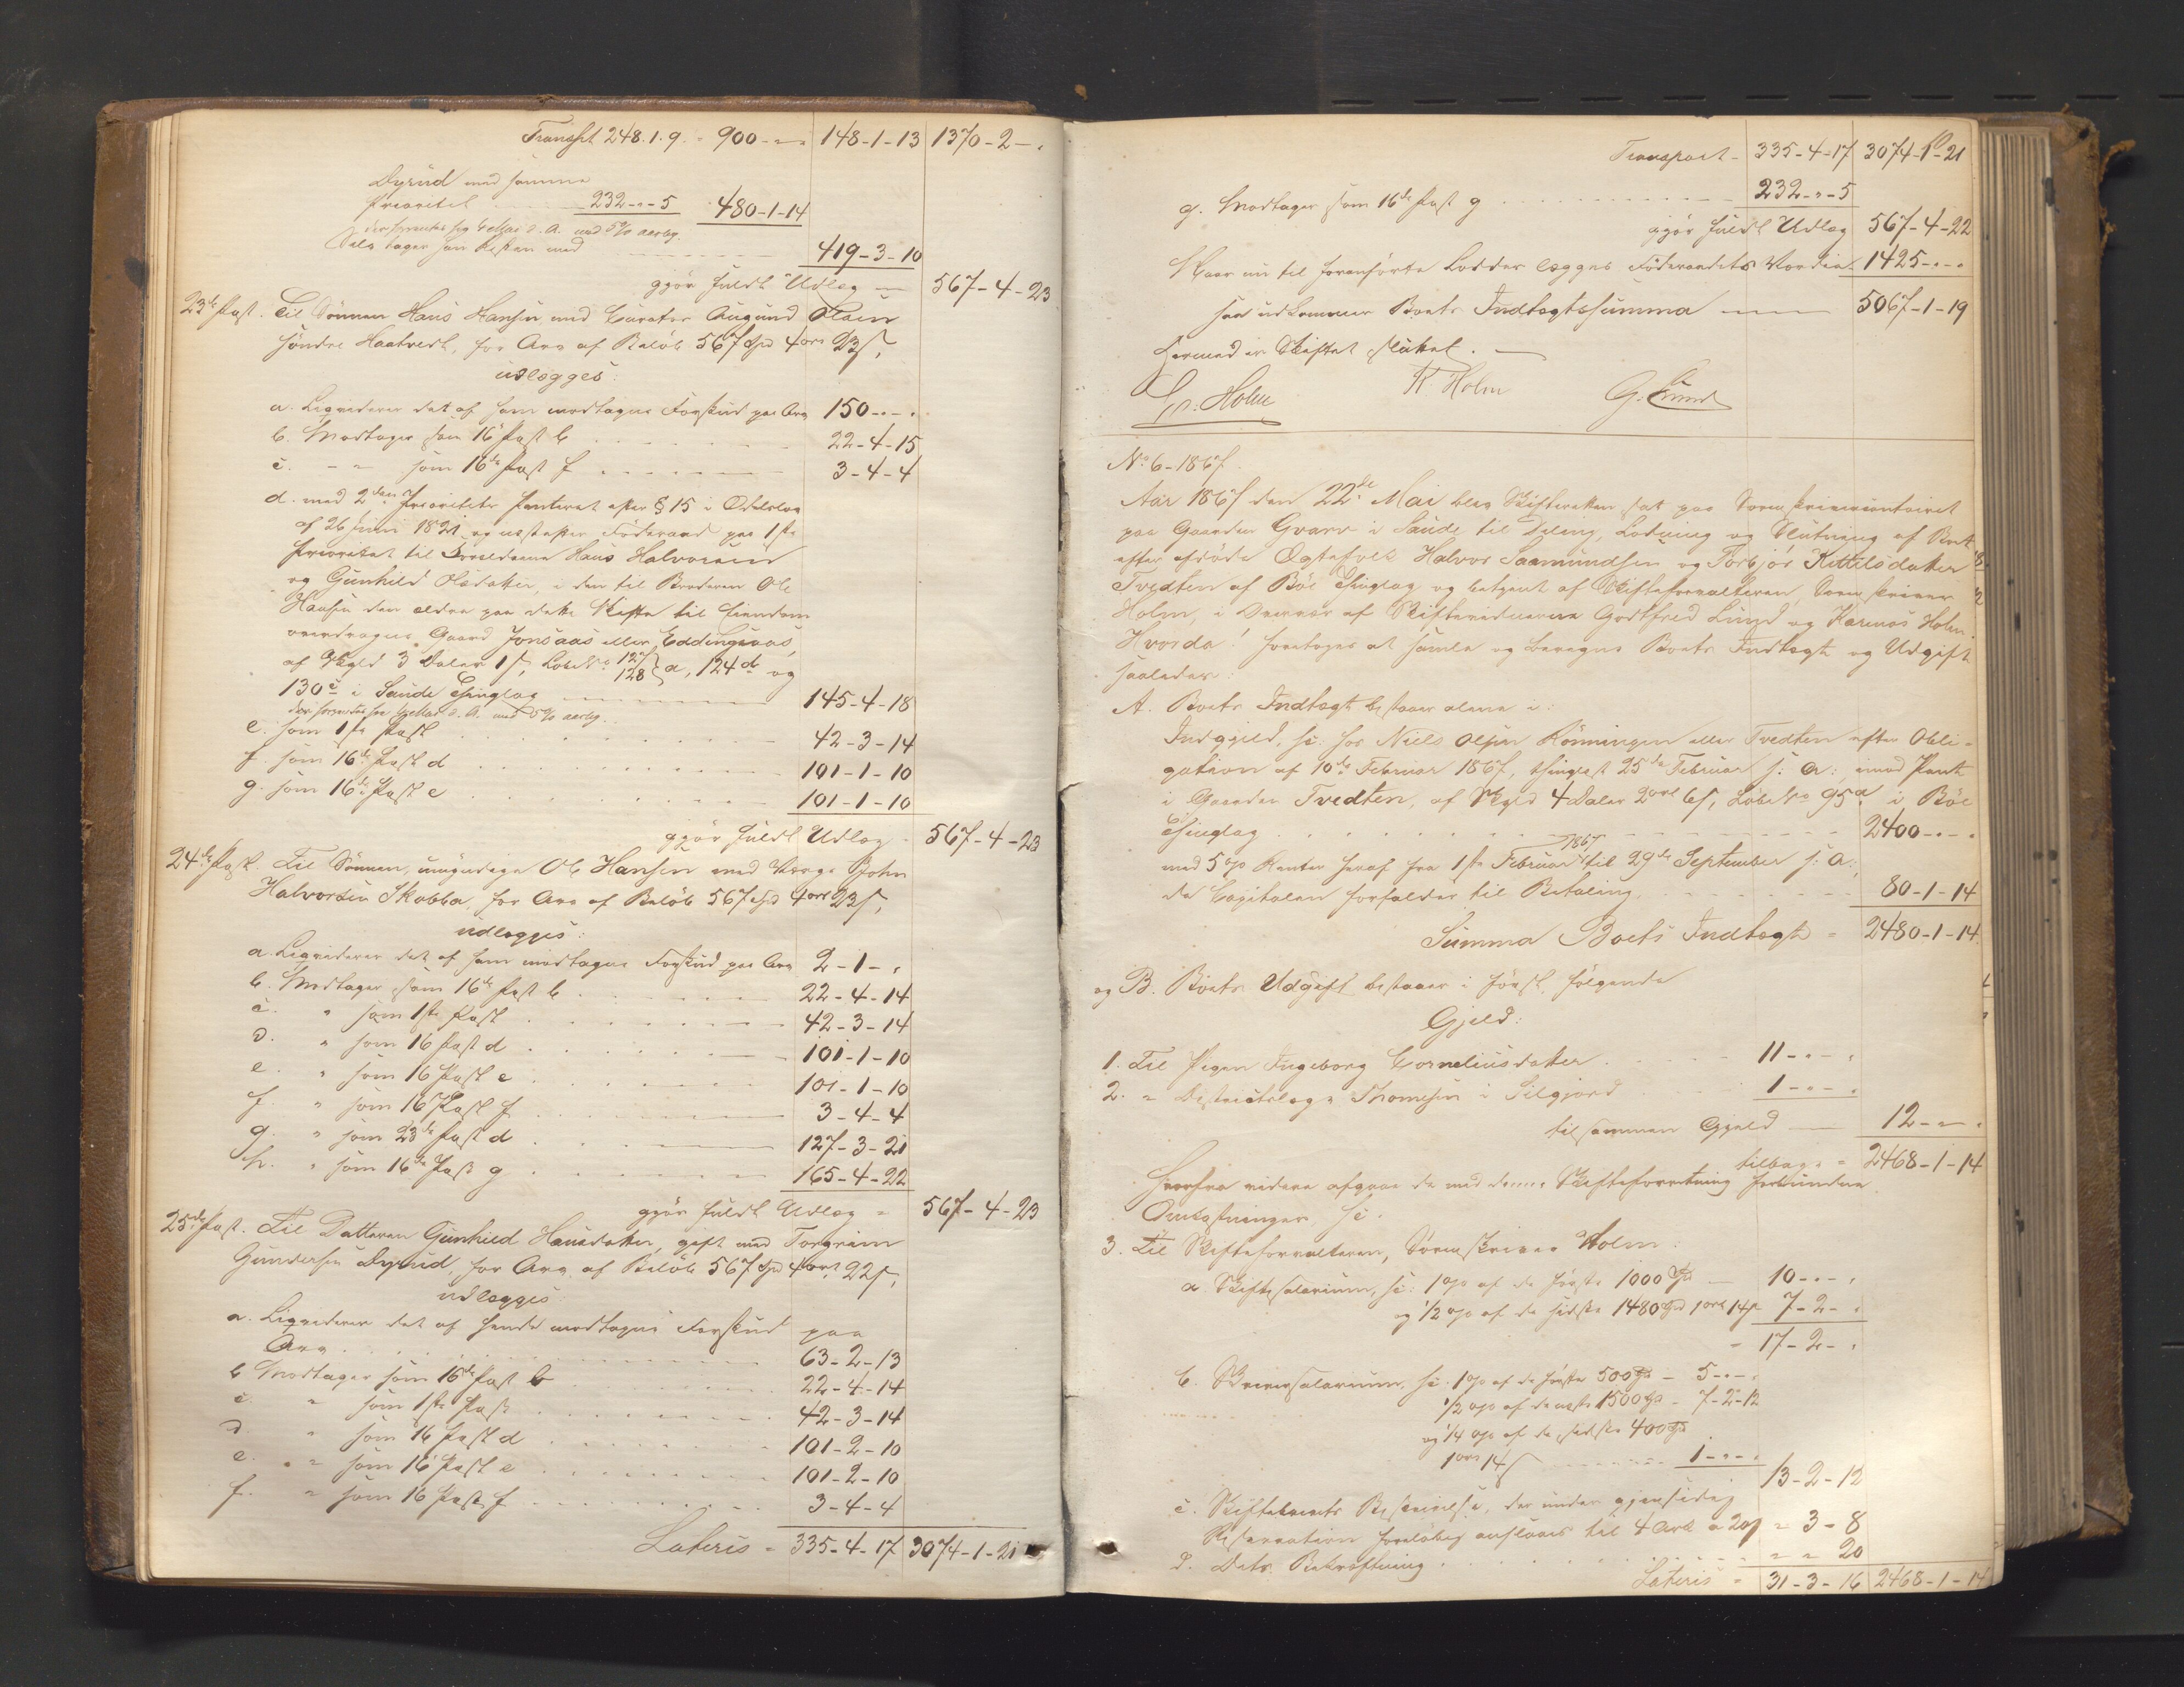 Transprt 248.1.9. - 900-"-" 148-1-13 1370-2-"
Dyrud med samme
Prioritet 232-"-5 480-1-14
der forrentes fra 6 Mai d. A. med 5% aarlig.
Selv tager han Resten med 419-3-10
gjør fuldt Udlæg — 567-4-23
23de Post. Til Sønnen Hans Hansen med Curator Augund Olsen
søndre Haatvedt, for Arv af Beløb 567 Spd 4 ort 23 s,
udlægges:
a. Liqviderer det af ham modtagne Forskud paa Arv 150-"-"
b. Modtager som 16 Post b 22-4-15
c. - " - som 16de Post f 3-4-4
d. med 2den Prioritets Panteret efter § 15 i Odelslov
af 26 Juni 1821 og næstefter Føderaad paa 1ste
Prioritet til Forældrene Hans Halvorsen
og Gunhild Olsdatter, i den til Broderen Ole
Hansen den ældre paa dette Skifte til Eiendom
overdragne Gaard Jonsaas eller Eddingsaas,
af Skyld 3 Daler 1 s, Løbe No 127 128 } a, 124 d og
130 c i Saude Thinglag 145-4-18
der forrentes fra 6 Mai d. A. med 5% aarlig.
e. som 1ste Post 42-3-14
f. som 16de Post d 101-1-10
g. som 16de Post e 101-1-10
gjør fuldt Udlæg - 567-4-23
24de Post. Til Sønnen, umyndige Ole Hansen med Værge John
Halvorsen Skobba, for Arv af Beløb 567 Spd 4 ort 23 s,
udlægges:
a. Liqviderer det af ham modtagne Forskud paa Arv 2-1-"
b. Modtager som 16de Post b 22-4-14
c. " som 1ste Post 42-3-14
d. " som 16 Post d 101-1-10
e. " som 16 Post e 101-1-10
f. " som 16 Post f 3-4-4
g. " som 23de Post d 127-3-21
h. " som 16de Post g 165-4-22
gjør fuldt Udlæg = 567-4-23
25de Post. Til Datteren Gunhild Hansdatter, gift med Torgrim
Gundersen Dyrud, for Arv af Beløb 567 Spd 4 ort 22 s,
udlægges:
a. Liqviderer det af hende modtagne Forskud paa
Arv 63-2-13
b Modtager som 16de Post b 22-4-14
c. " som 1ste Post 42-3-14
d " som 16 Post d 101-2-10
e. " som 16 Post e 101-2-10
f. " som 16 Post f 3-4-4
Lateris = 335-4-17 3074-1-21
Transport - 335-4-17 3074-1-21
g. Modtager som 16de Post g 232-"-5
gjør fuldt Udlæg 567-4-22
Naar nu til foranførte Lodder lægges Føderaadets Værdie 1425-"-"
saa udkommer Boets Indtægtssumma 5067-1-19
Hermed er Skiftet sluttet.
C. Holm K. Holm G. Lund
No 6-1867.
Aar 1867 den 22de Mai blev Skifteretten sat paa Sorenskrivercontoiret
paa Gaarden Gvarv i Saude til Deling, Lodning og Slutning af Boet
efter afdøde Ægtefolk Halvor Saamundsen og Torbjør Kittilsdatter
Tvedten af Bøe Thinglag og betjent af Skifteforvalteren, Sorenskriver
Holm, i Overvær af Skiftevidnerne Godtfred Lund og Karenus Holm.
Hvorda! foretoges at samle og beregne Boets Indtægt og Udgift
saaledes:
A. Boets Indtægt bestaaer alene i:
Indgjeld, sc: hos Niels Olsen Rønningen eller Tvedten efter Obli-
gation af 10de Februar 1867, thinglæst 25de Februar s: A:, imod Pant
i Gaarden Tvedten, af Skyld 4 Daler 2 ort 6 s, Løbe No 95 a i Bøe
Thinglag 2400-"-"
med 5 % Renter heraf fra 1ste Februar 1867 til 29de September s: A:,
da Capitalen forfalder til Betaling 80-1-14
Summa Boets Indtægt = 2480-1-14
og B. Boets Udgift bestaaer i først følgende
Gjeld:
1. Til Pigen Ingeborg Corneliusdatter 11-"-"
2. " Districtslæge Thomesen i Silgjord 1-"-"
tilsammen Gjæld — 12-"-"
tilbage = 2468-1-14
Hvorfra videre afgaae de med denne Skifteforretning forbundne
Omkostninger, sc:
3. Til Skifteforvalteren, Sorenskriver Holm:
a. Skiftesalarium, sc: 1 % af de første 1000 Spd — 10-"-"
og 1/2 % af de sidste 1480 Spd 1 ort 14 s 7-2-"
= 17-2-"
b. Skriversalarium, sc: 1 % af de første 500 Spd - 5-"-"
1/2 % af de næste 1500 Spd - 7-2-12
og 1/4 % af de sidste 400 Spd
1 ort 14 s 1-"-"
13-2-12
c. Skiftebrevets Beskrivelse, der under gjensidig
Reservation foreløbig anslaaes til 4 Ark a 20 s " 3-8
d. Dets Bekræftning " " 20
Lateris = 31-3-16 2468-1-14